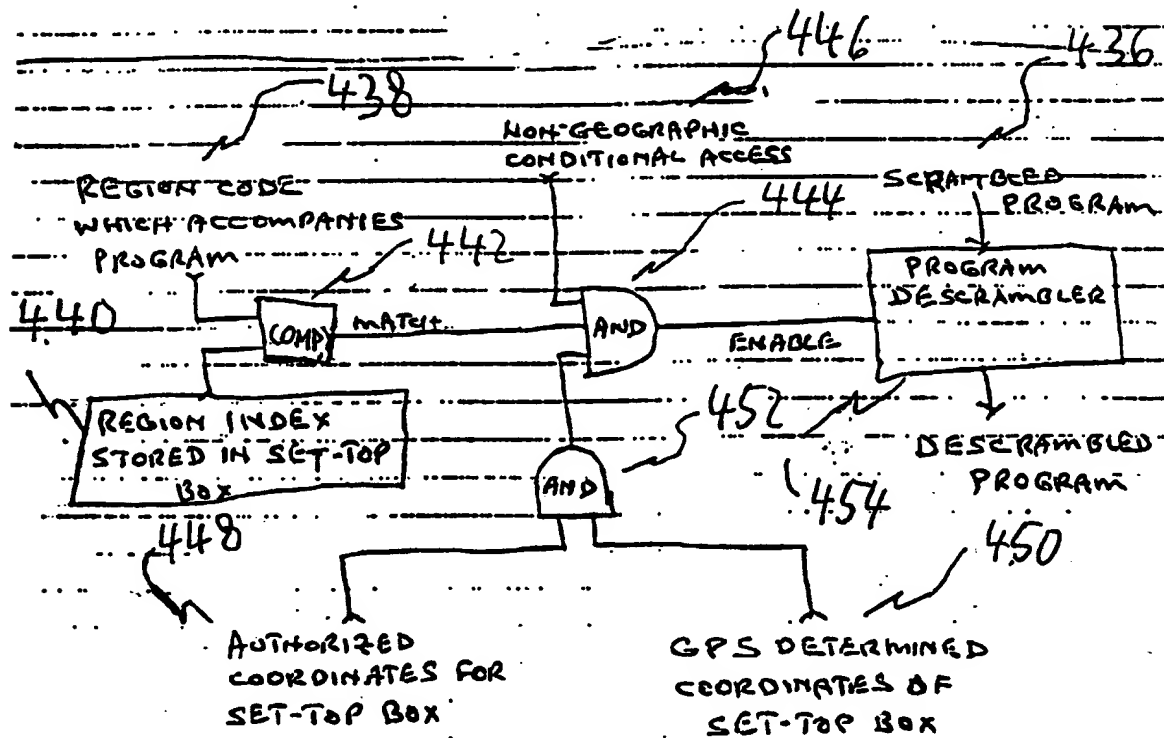 446
436
438
NON-GEOGRAPHIC
CONDITIONAL ACCESS
REGION CODE
WHICH ACCOMPANIES
PROGRAM
SCRAMBLED
PROGRAM
444
442
PROGRAM
DESCRAMBLER
440
COMP
MATCH
AND
ENABLE
REGION INDEX
STORED IN SET-TOP
BOX
452
AND
DESCRAMBLED
PROGRAM
454
448
450
AUTHORIZED
COORDINATES FOR
SET-TOP BOX
GPS DETERMINED
COORDINATES OF
SET-TOP BOX